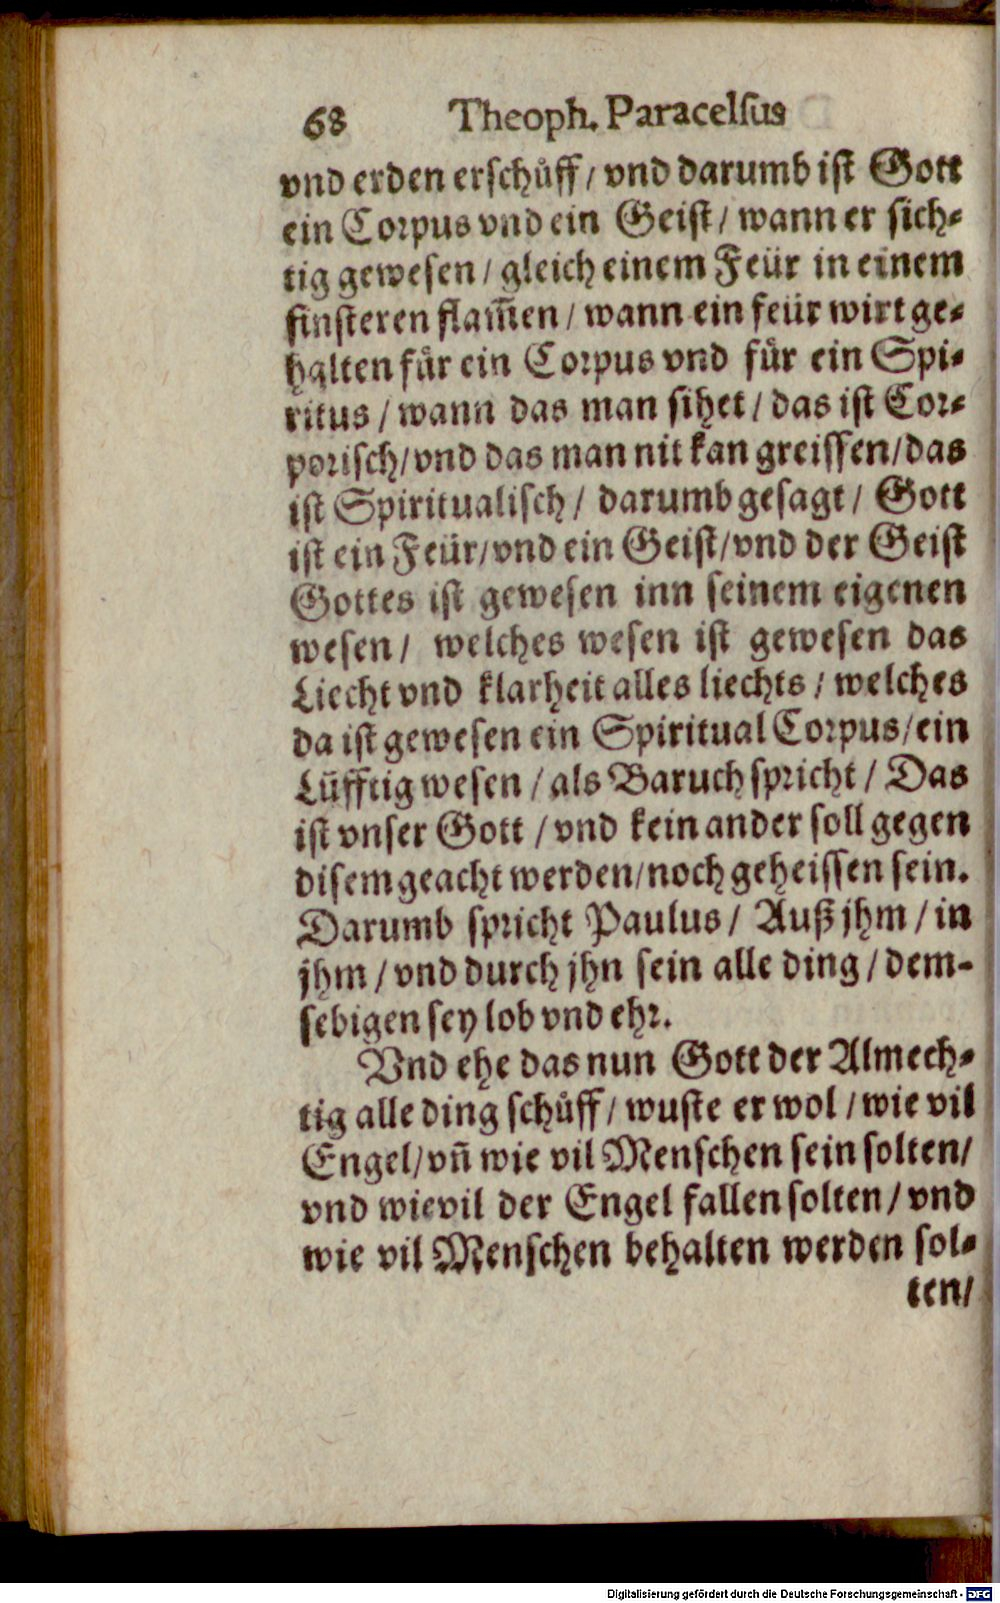 68 Theoph. Paracelſus
vnd erden erschůff / vnd darumb ist Gott
ein Corpus vnd ein Geist / wann er sich-
tig gewesen / gleich einem Feür in einem
finsteren flam̄en / wann ein feür wirt ge-
halten für ein Corpus vnd für ein Spi-
ritus / wann das man sihet / das ist Cor-
porisch / vnd das man nit kan greiffen / das
ist Spiritualisch / darumb gesagt / Gott
ist ein Feür / vnd ein Geist / vnd der Geist
Gottes ist gewesen inn seinem eigenen
wesen / welches wesen ist gewesen das
Liecht vnd klarheit alles liechts / welches
da ist gewesen ein Spiritual Corpus / ein
Lüfftig wesen / als Baruch spricht / Das
ist vnser Gott / vnd kein ander soll gegen
disem geacht werden / noch geheissen sein.
Darumb spricht Paulus / Auß jhm / in
jhm / vnd durch jhn sein alle ding / dem-
sebigen sey lob vnd ehr.
Vnd ehe das nun Gott der Almech-
tig alle ding schůff / wuste er wol / wie vil
Engel / vn̄ wie vil Menschen sein solten /
vnd wievil der Engel fallen solten / vnd
wie vil Menschen behalten werden sol-
ten /
Digitalisierung gefördert durch die Deutsche Forschungsgemeinschaft - DFG